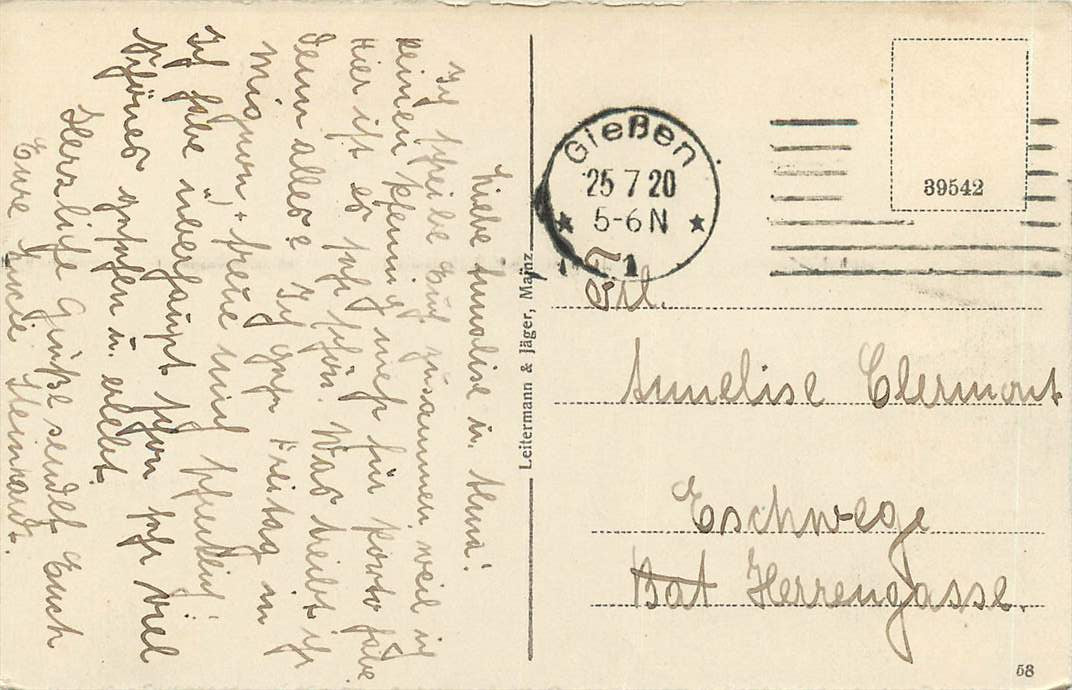 Liebe Annalise u. Anna!
Ich schreibe Euch zusammen weil ich
keinen Pfennig mehr für Porto habe
Hier ist es sehr schön. Was treibt ihr
denn alles? Ich geh Freitag in
Mignon, + freue mich schrecklich!
Ich habe überhaupt schon sehr viel
schönes gesehen u. erlebt.
Herzliche Grüße sendet Euch
Eure Lucie Steinhard.
Leitermann & Jäger, Mainz
Gießen
25 7 20
5-6 N
1
39542
Frl.
Annelise Clermont
Eschwege
Bat Herrengasse.
58